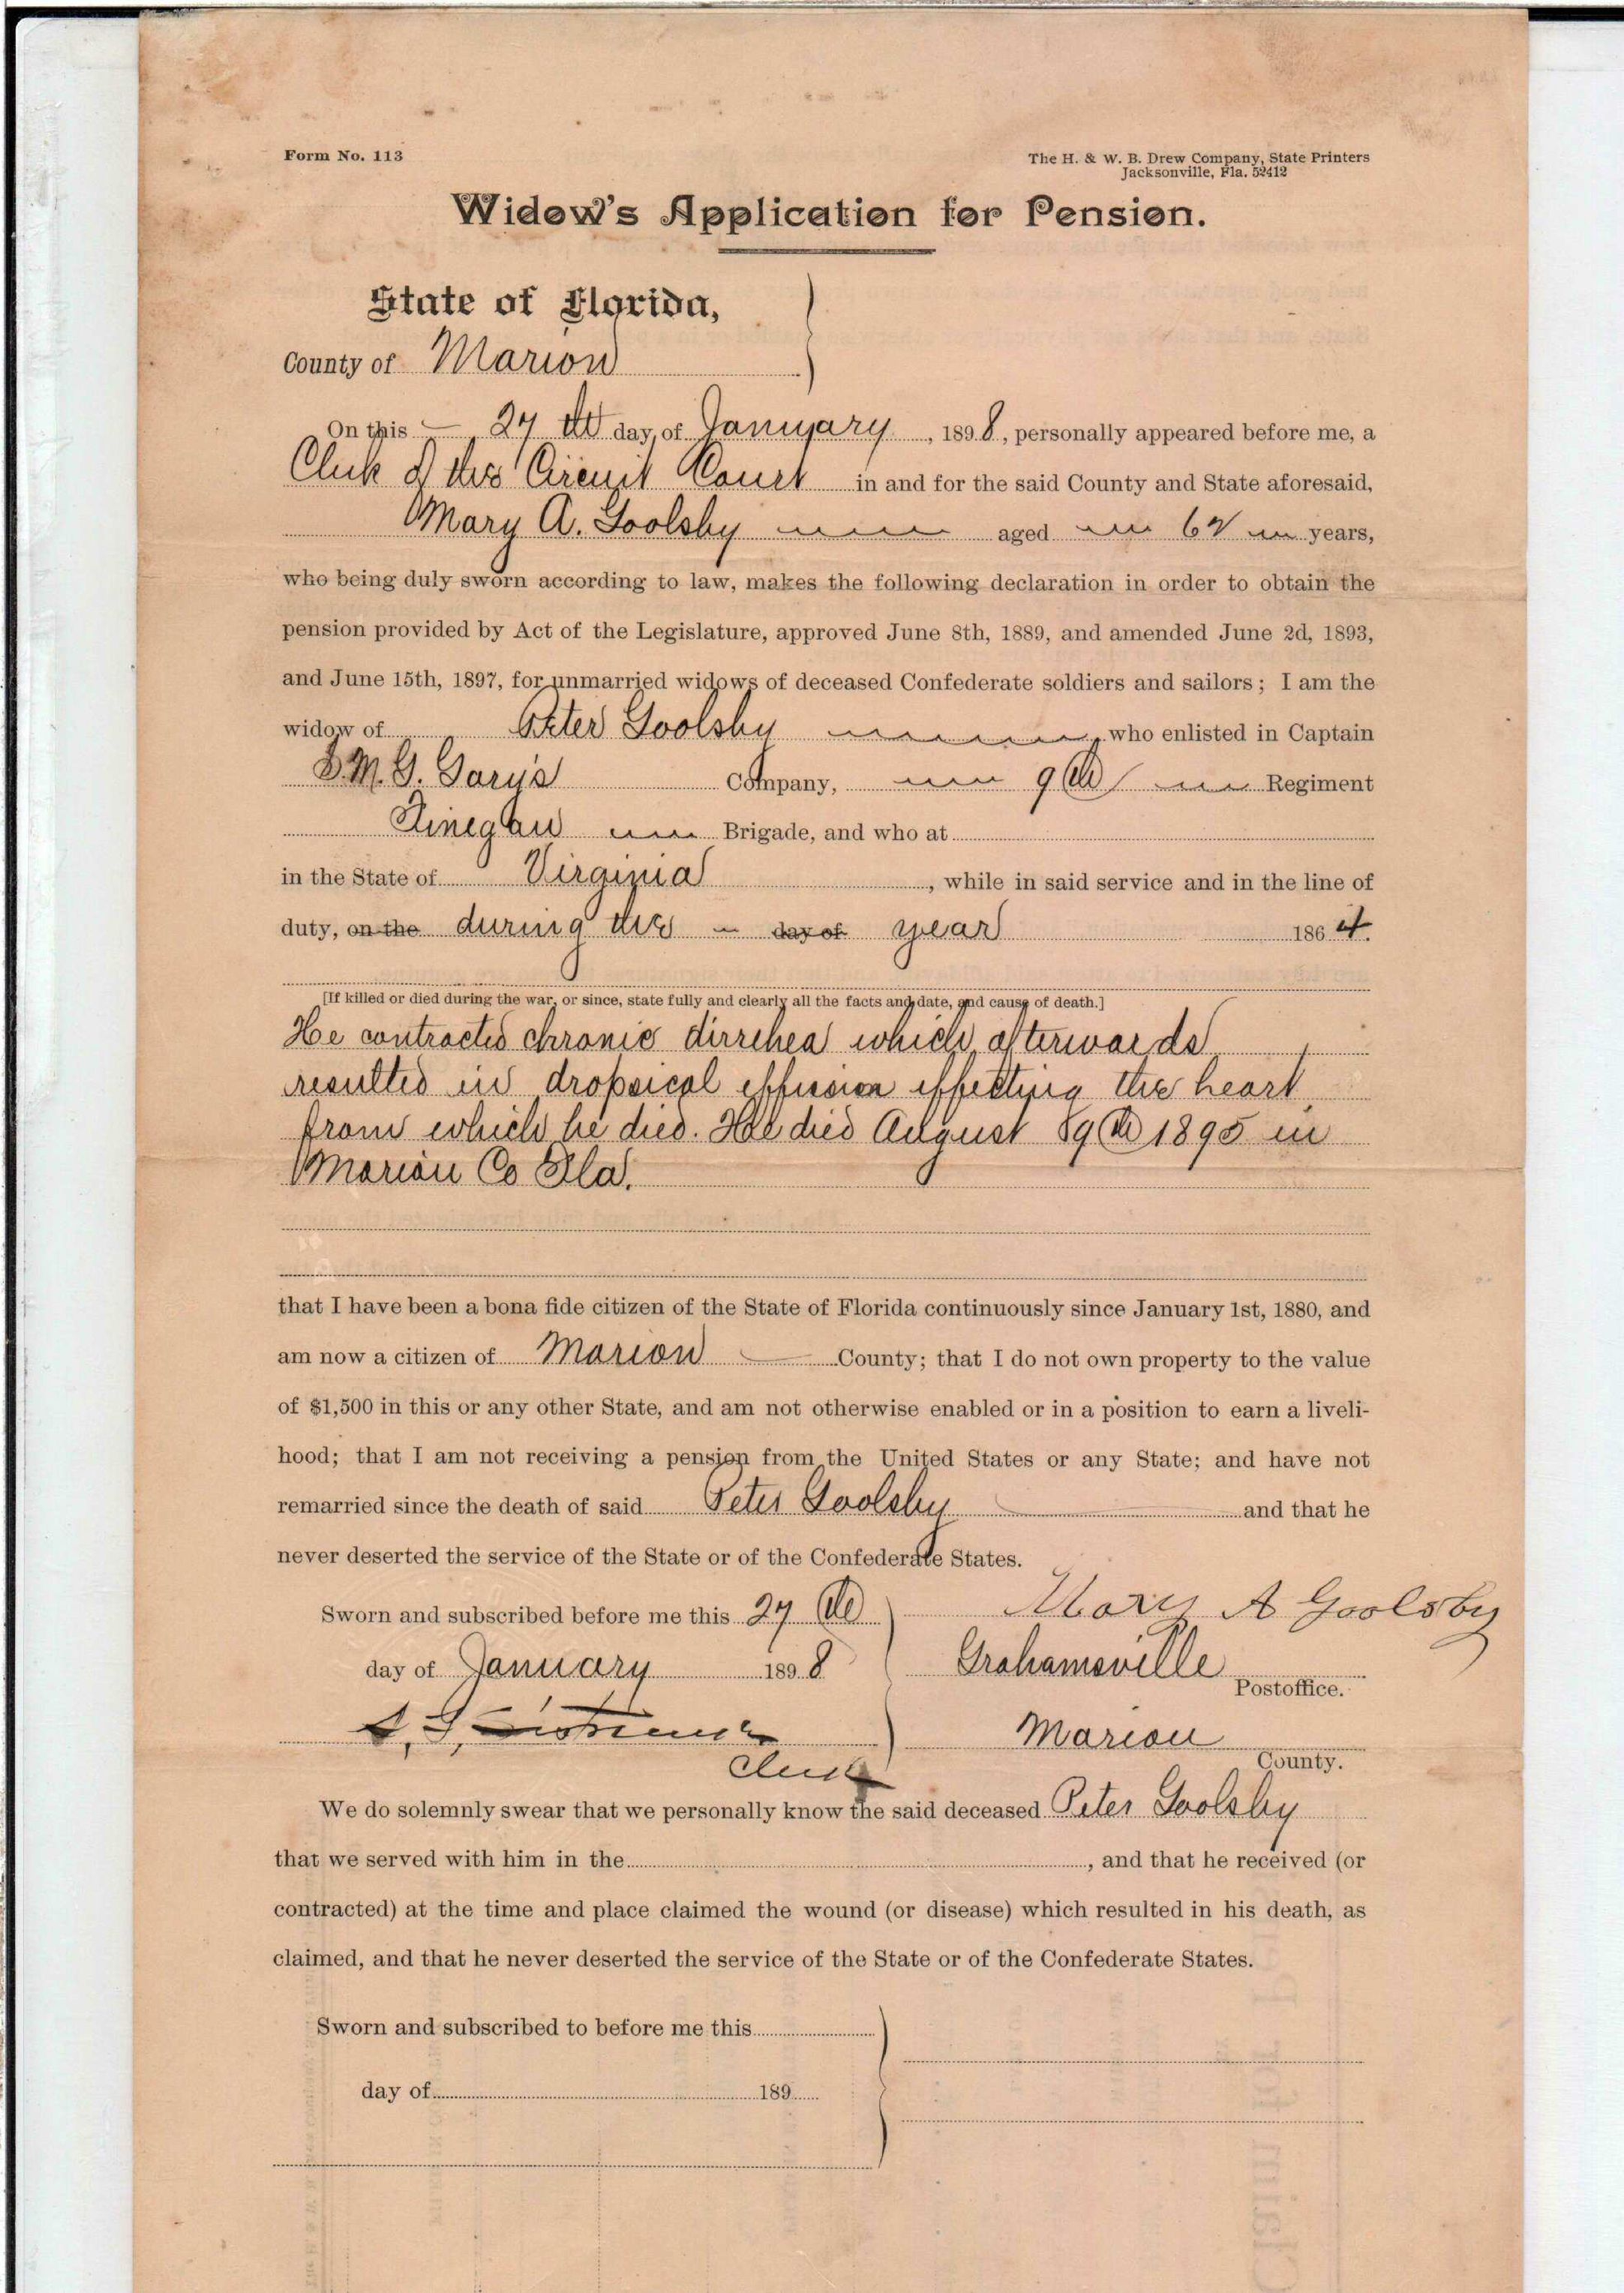 Form No. 113
The H. & W. B. Drew Company, State Printers
Jacksonville, Fla. 52412
Widow's Application for Pension.
State of Florida,
County of Marion
On this 27 th day of January, 1898, personally appeared before me, a
Clerk of the Circuit Court in and for the said County and State aforesaid,
Mary A. Goolsby aged 62 years,
who being duly sworn according to law, makes the following declaration in order to obtain the
pension provided by Act of the Legislature, approved June 8th, 1889, and amended June 2d, 1893,
and June 15th, 1897, for unmarried widows of deceased Confederate soldiers and sailors; I am the
widow of Peter Goolsby, who enlisted in Captain
S.M.G. Gary's Company, 9th Regiment
Finegan Brigade, and who at
in the State of Virginia, while in said service and in the line of
duty, on the during the day of year 1864.
[If killed or died during the war, or since, state fully and clearly all the facts and date, and cause of death.]
He contracted chronic dirrehea which afterwards
resulted in dropsical effusion effecting the heart
from which he died. He died August 19th 1895 in
Marion Co Fla.
that I have been a bona fide citizen of the State of Florida continuously since January 1st, 1880, and
am now a citizen of Marion County; that I do not own property to the value
of $1,500 in this or any other State, and am not otherwise enabled or in a position to earn a liveli-
hood; that I am not receiving a pension from the United States or any State; and have not
remarried since the death of said Peter Goolsby and that he
never deserted the service of the State or of the Confederate States.
Sworn and subscribed before me this 27th
Mary A Goolsby
day of January 1898
Grahamsville
Postoffice.
Marion
County.
Clerk
We do solemnly swear that we personally know the said deceased Peter Goolsby
that we served with him in the, and that he received (or
contracted) at the time and place claimed the wound (or disease) which resulted in his death, as
claimed, and that he never deserted the service of the State or of the Confederate States.
Sworn and subscribed to before me this
day of 189